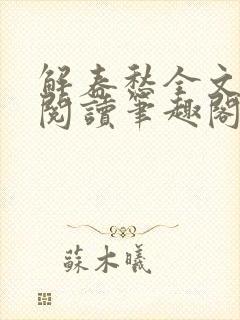 解春愁全文
閱讀筆趣閣
蘇木曦